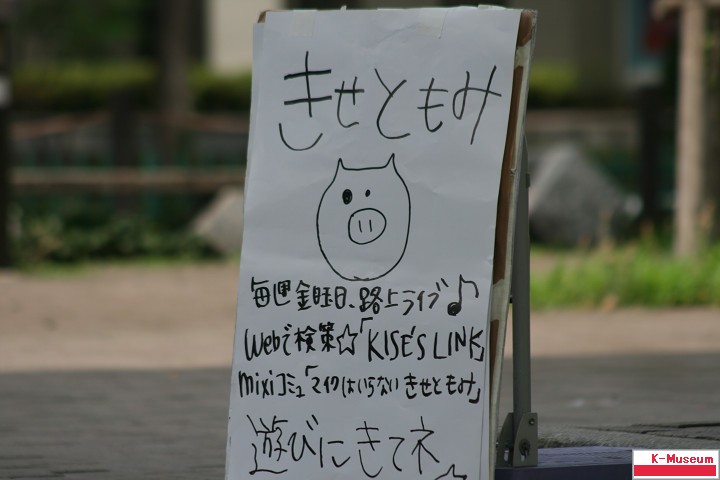 きせともみ
毎週金曜日、路上ライブ♪
Webで検策☆「KISE'S LINK」
mixiコミュ「マイクはいらない きせともみ」
遊びにきてネ
☆
K-Museum